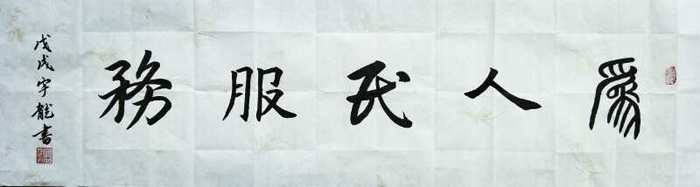 為人民服務
戊戌宇龍書